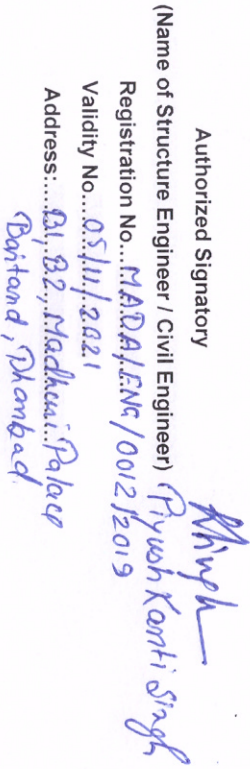 Authorized Signatory
(Name of Structure Engineer / Civil Engineer) Piyush Kanti Singh
Registration No....MADA/ENG/0012/2019
Validity No....05/11/2021
Address:....B1, B2, Madhuri Palace
Bartand, Dhanbad